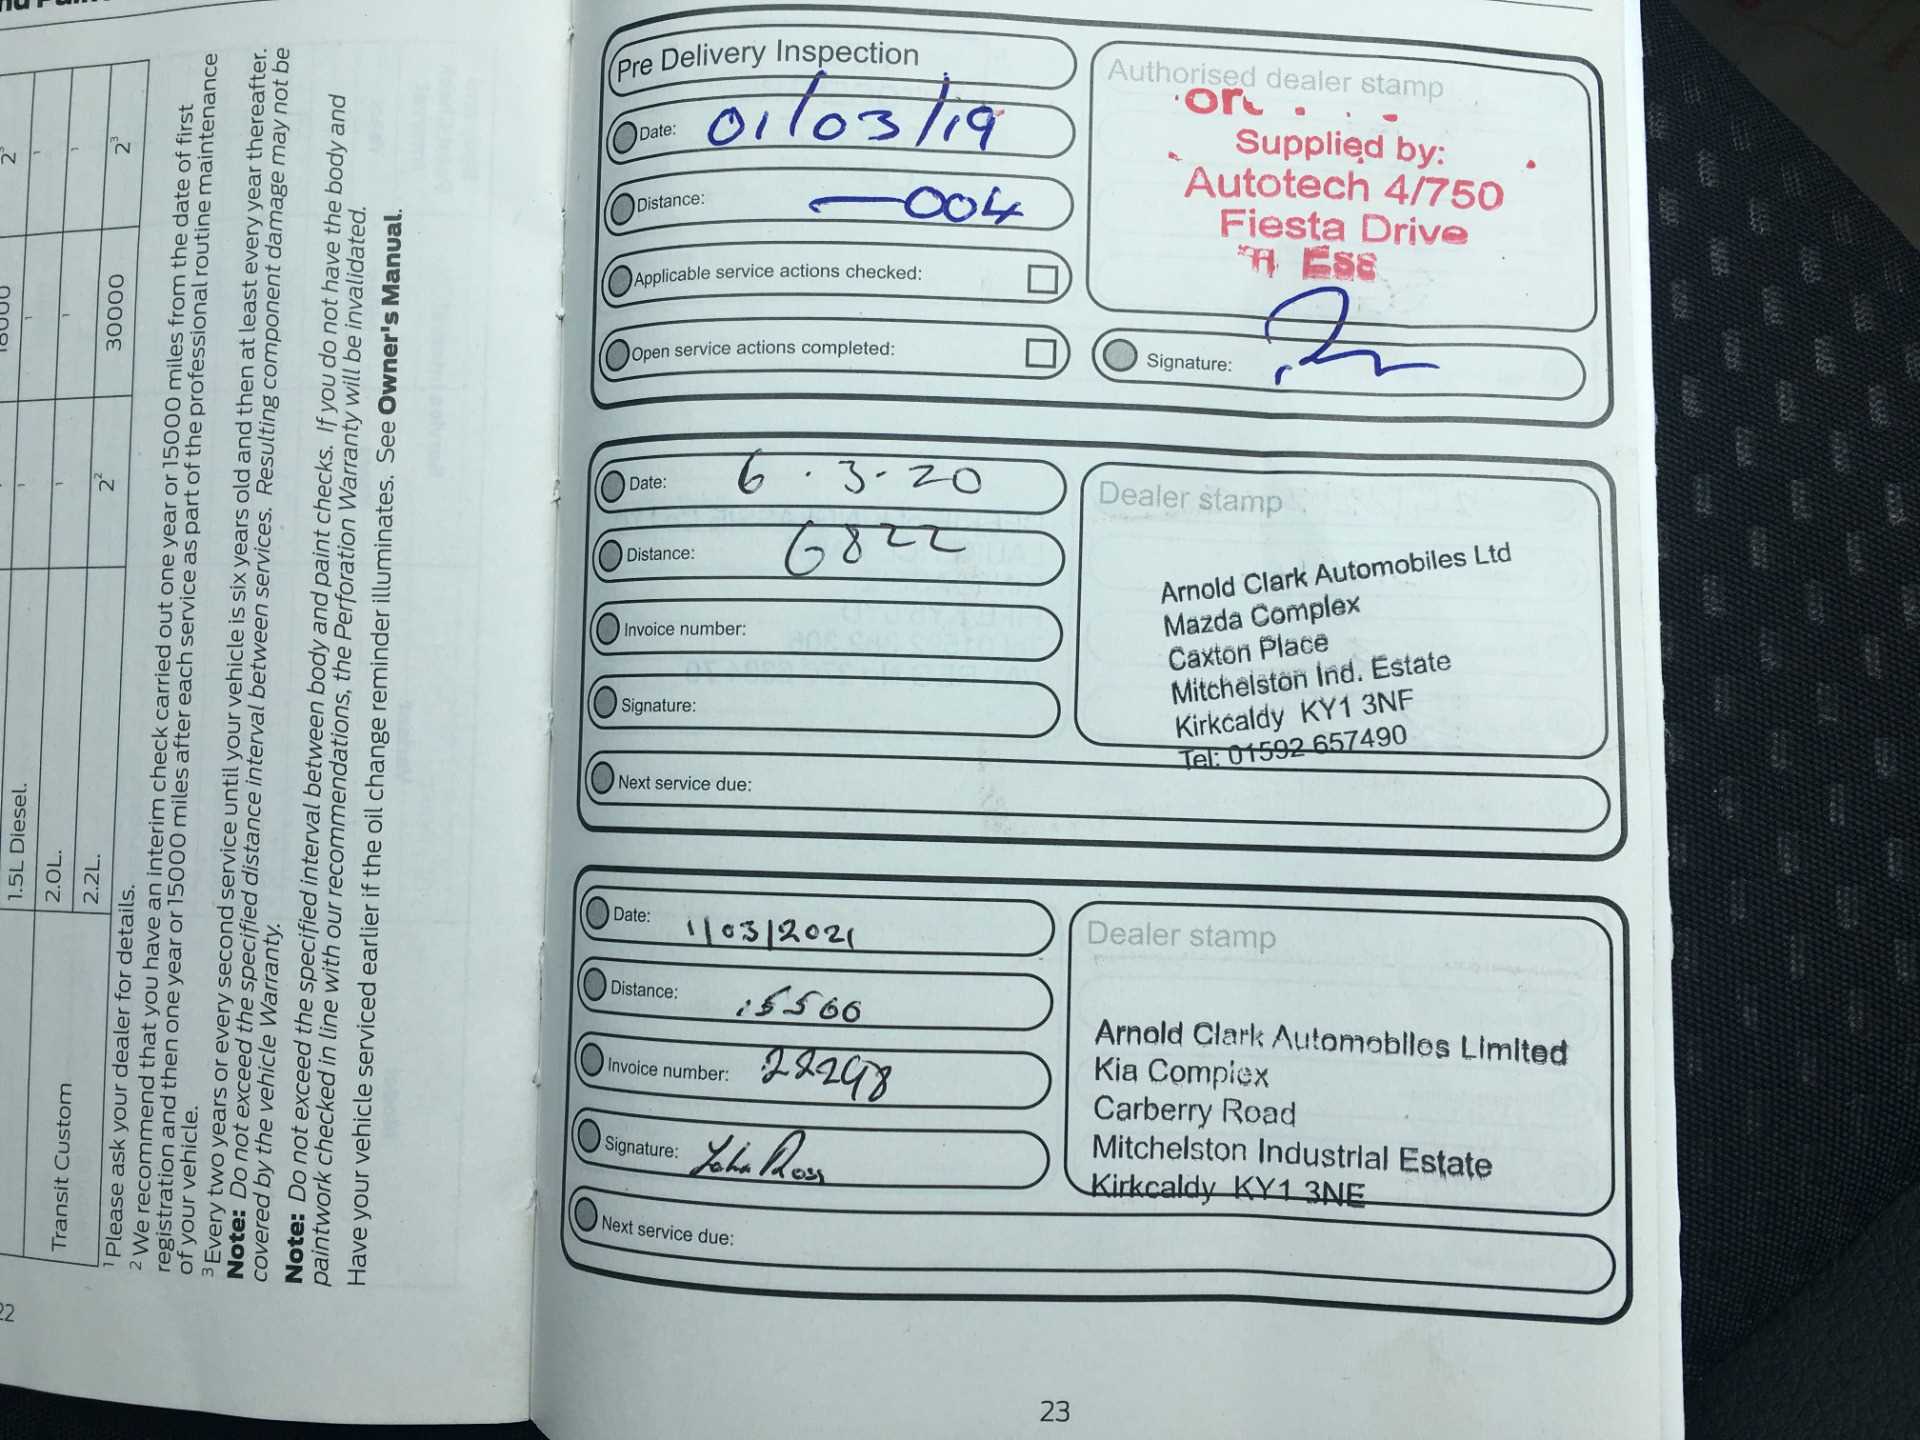 1.5L Diesel.
2.0L.
2.2L.
2²
30000
2³
Transit Custom
¹ Please ask your dealer for details.
² We recommend that you have an interim check carried out one year or 15000 miles from the date of first
registration and then one year or 15000 miles after each service as part of the professional routine maintenance
of your vehicle.
³ Every two years or every second service until your vehicle is six years old and then at least every year thereafter.
Note: Do not exceed the specified distance interval between services. Resulting component damage may not be
covered by the vehicle Warranty.
Note: Do not exceed the specified interval between body and paint checks. If you do not have the body and
paintwork checked in line with our recommendations, the Perforation Warranty will be invalidated.
Have your vehicle serviced earlier if the oil change reminder illuminates. See Owner's Manual.
Pre Delivery Inspection
Date: 01/03/19
Distance: —004
Applicable service actions checked:
Open service actions completed:
Authorised dealer stamp
Supplied by:
Autotech 4/750
Fiesta Drive
Signature:
Date: 6.3.20
Distance: 6822
Invoice number:
Signature:
Next service due:
Dealer stamp
Arnold Clark Automobiles Ltd
Mazda Complex
Caxton Place
Mitchelston Ind. Estate
Kirkcaldy KY1 3NF
Tel: 01592 657490
Date: 1/03/2021
Distance: 15560
Invoice number: 22298
Signature: John Ross
Next service due:
Dealer stamp
Arnold Clark Automobiles Limited
Kia Complex
Carberry Road
Mitchelston Industrial Estate
Kirkcaldy KY1 3NE
23